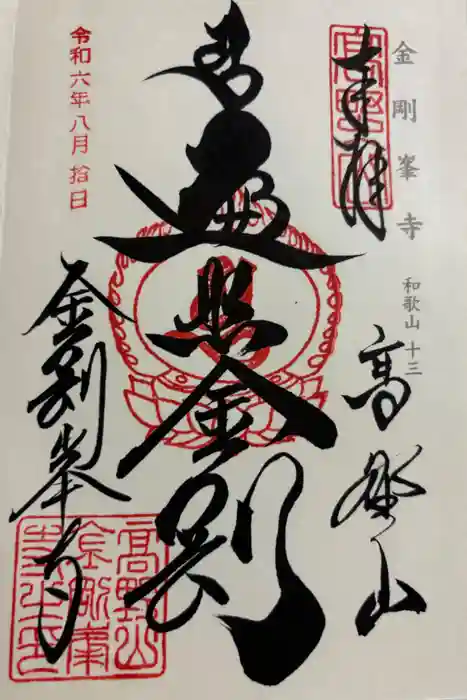 金剛峯寺 和歌山 十三
奉拝
高野山
遍照金剛
令和六年八月拾日
金剛峯寺
高野山
金剛峯
寺之印